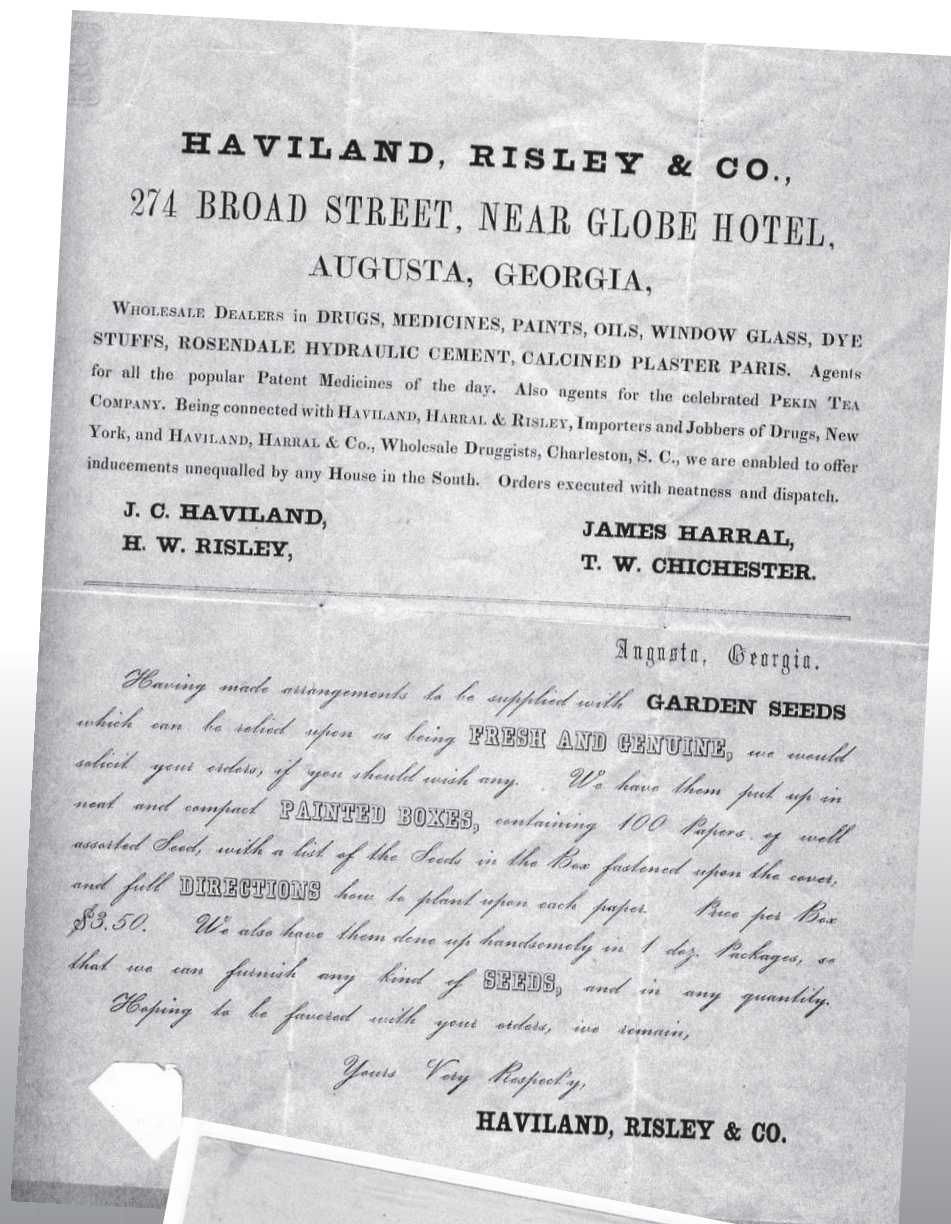 HAVILAND, RISLEY & CO.,
274 BROAD STREET, NEAR GLOBE HOTEL,
AUGUSTA, GEORGIA,
WHOLESALE DEALERS in DRUGS, MEDICINES, PAINTS, OILS, WINDOW GLASS, DYE
STUFFS, ROSENDALE HYDRAULIC CEMENT, CALCINED PLASTER PARIS. Agents
for all the popular Patent Medicines of the day. Also agents for the celebrated PEKIN TEA
COMPANY. Being connected with HAVILAND, HARRAL & RISLEY, Importers and Jobbers of Drugs, New
York, and HAVILAND, HARRAL & Co., Wholesale Druggists, Charleston, S. C., we are enabled to offer
inducements unequalled by any House in the South. Orders executed with neatness and dispatch.
J. C. HAVILAND,
H. W. RISLEY,
JAMES HARRAL,
T. W. CHICHESTER.
Augusta, Georgia.
Having made arrangements to be supplied with GARDEN SEEDS
which can be relied upon as being FRESH AND GENUINE, we would
solicit your orders, if you should wish any. We have them put up in
neat and compact PAINTED BOXES, containing 100 Papers of well
assorted Seed, with a list of the Seeds in the Box fastened upon the cover,
and full DIRECTIONS how to plant upon each paper. Price per Box
$3.50. We also have them done up handsomely in 1 doz. Packages, so
that we can furnish any kind of SEEDS, and in any quantity.
Hoping to be favored with your orders, we remain,
Yours Very Respect'y,
HAVILAND, RISLEY & CO.